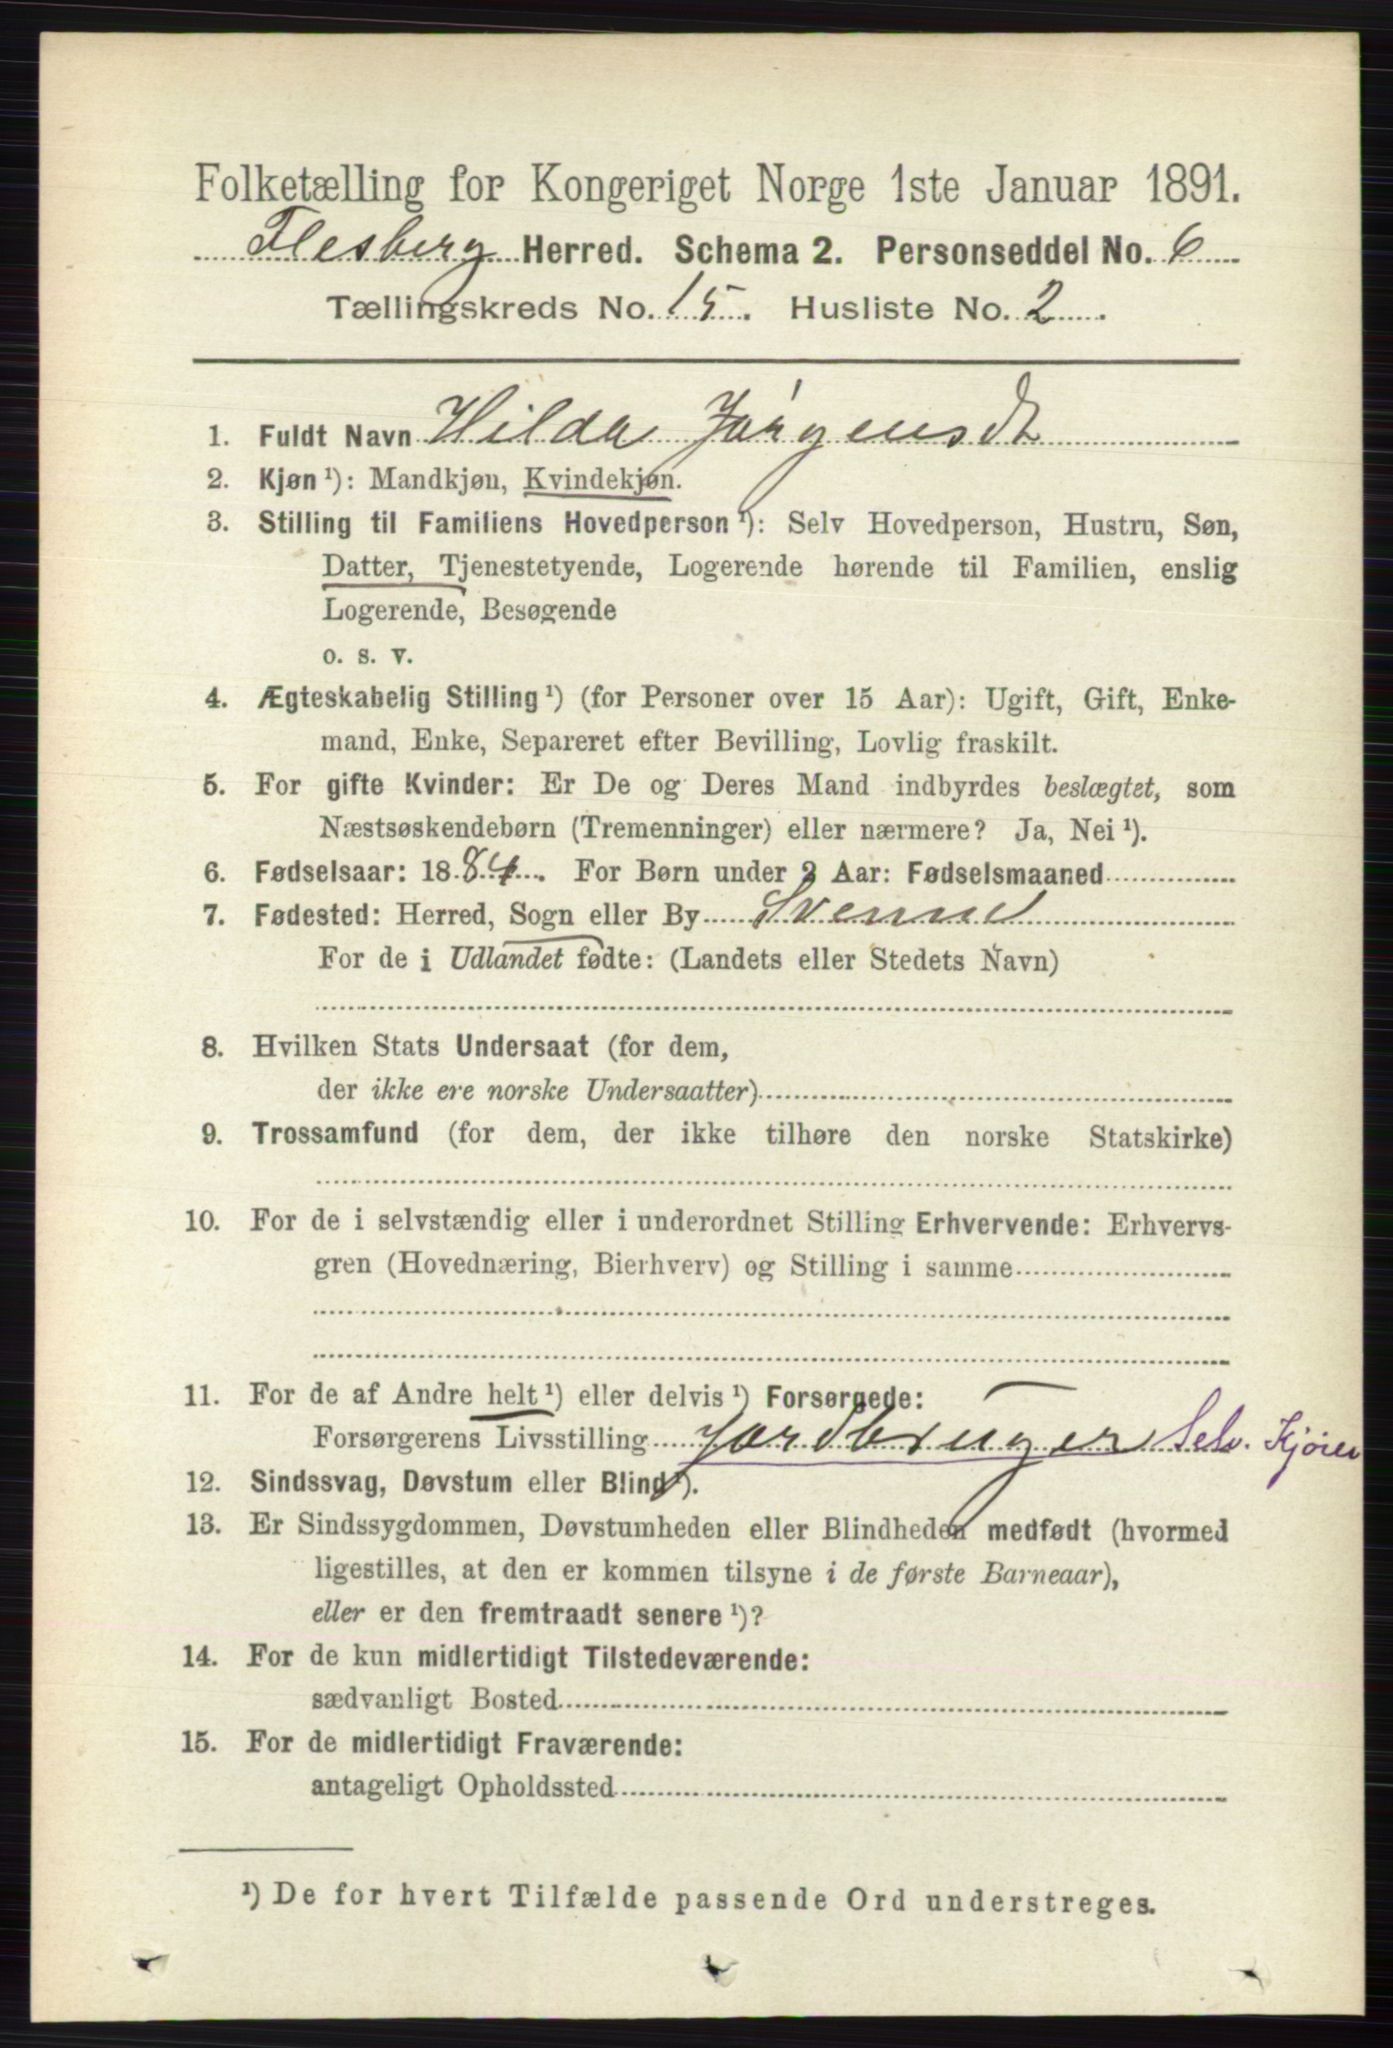 Folketælling for Kongeriget Norge 1ste Januar 1891.
Flesberg Herred. Schema 2. Personseddel No. 6
Tællingskreds No. 15. Husliste No. 2.
1. Fuldt Navn Hilda Jørgensdt
2. Kjøn ¹): Mandkjøn, Kvindekjøn.
3. Stilling til Familiens Hovedperson ¹): Selv Hovedperson, Hustru, Søn,
Datter, Tjenestetyende, Logerende hørende til Familien, enslig
Logerende, Besøgende
o. s. v.
4. Ægteskabelig Stilling ¹) (for Personer over 15 Aar): Ugift, Gift, Enke-
mand, Enke, Separeret efter Bevilling, Lovlig fraskilt.
5. For gifte Kvinder: Er De og Deres Mand indbyrdes beslægtet, som
Næstsøskendebørn (Tremenninger) eller nærmere? Ja, Nei ¹).
6. Fødselsaar: 1884. For Børn under 2 Aar: Fødselsmaaned
7. Fødested: Herred, Sogn eller By Svenne
For de i Udlandet fødte: (Landets eller Stedets Navn)
8. Hvilken Stats Undersaat (for dem,
der ikke ere norske Undersaatter)
9. Trossamfund (for dem, der ikke tilhøre den norske Statskirke)
10. For de i selvstændig eller i underordnet Stilling Erhvervende: Erhvervs-
gren (Hovednæring, Bierhverv) og Stilling i samme
11. For de af Andre helt ¹) eller delvis ¹) Forsørgede:
Forsørgerens Livsstilling Jordbruger Selv. Kjører
12. Sindssvag, Døvstum eller Blind ¹).
13. Er Sindssygdommen, Døvstumheden eller Blindheden medfødt (hvormed
ligestilles, at den er kommen tilsyne i de første Barneaar),
eller er den fremtraadt senere ¹)?
14. For de kun midlertidigt Tilstedeværende:
sædvanligt Bosted
15. For de midlertidigt Fraværende:
antageligt Opholdssted
¹) De for hvert Tilfælde passende Ord understreges.